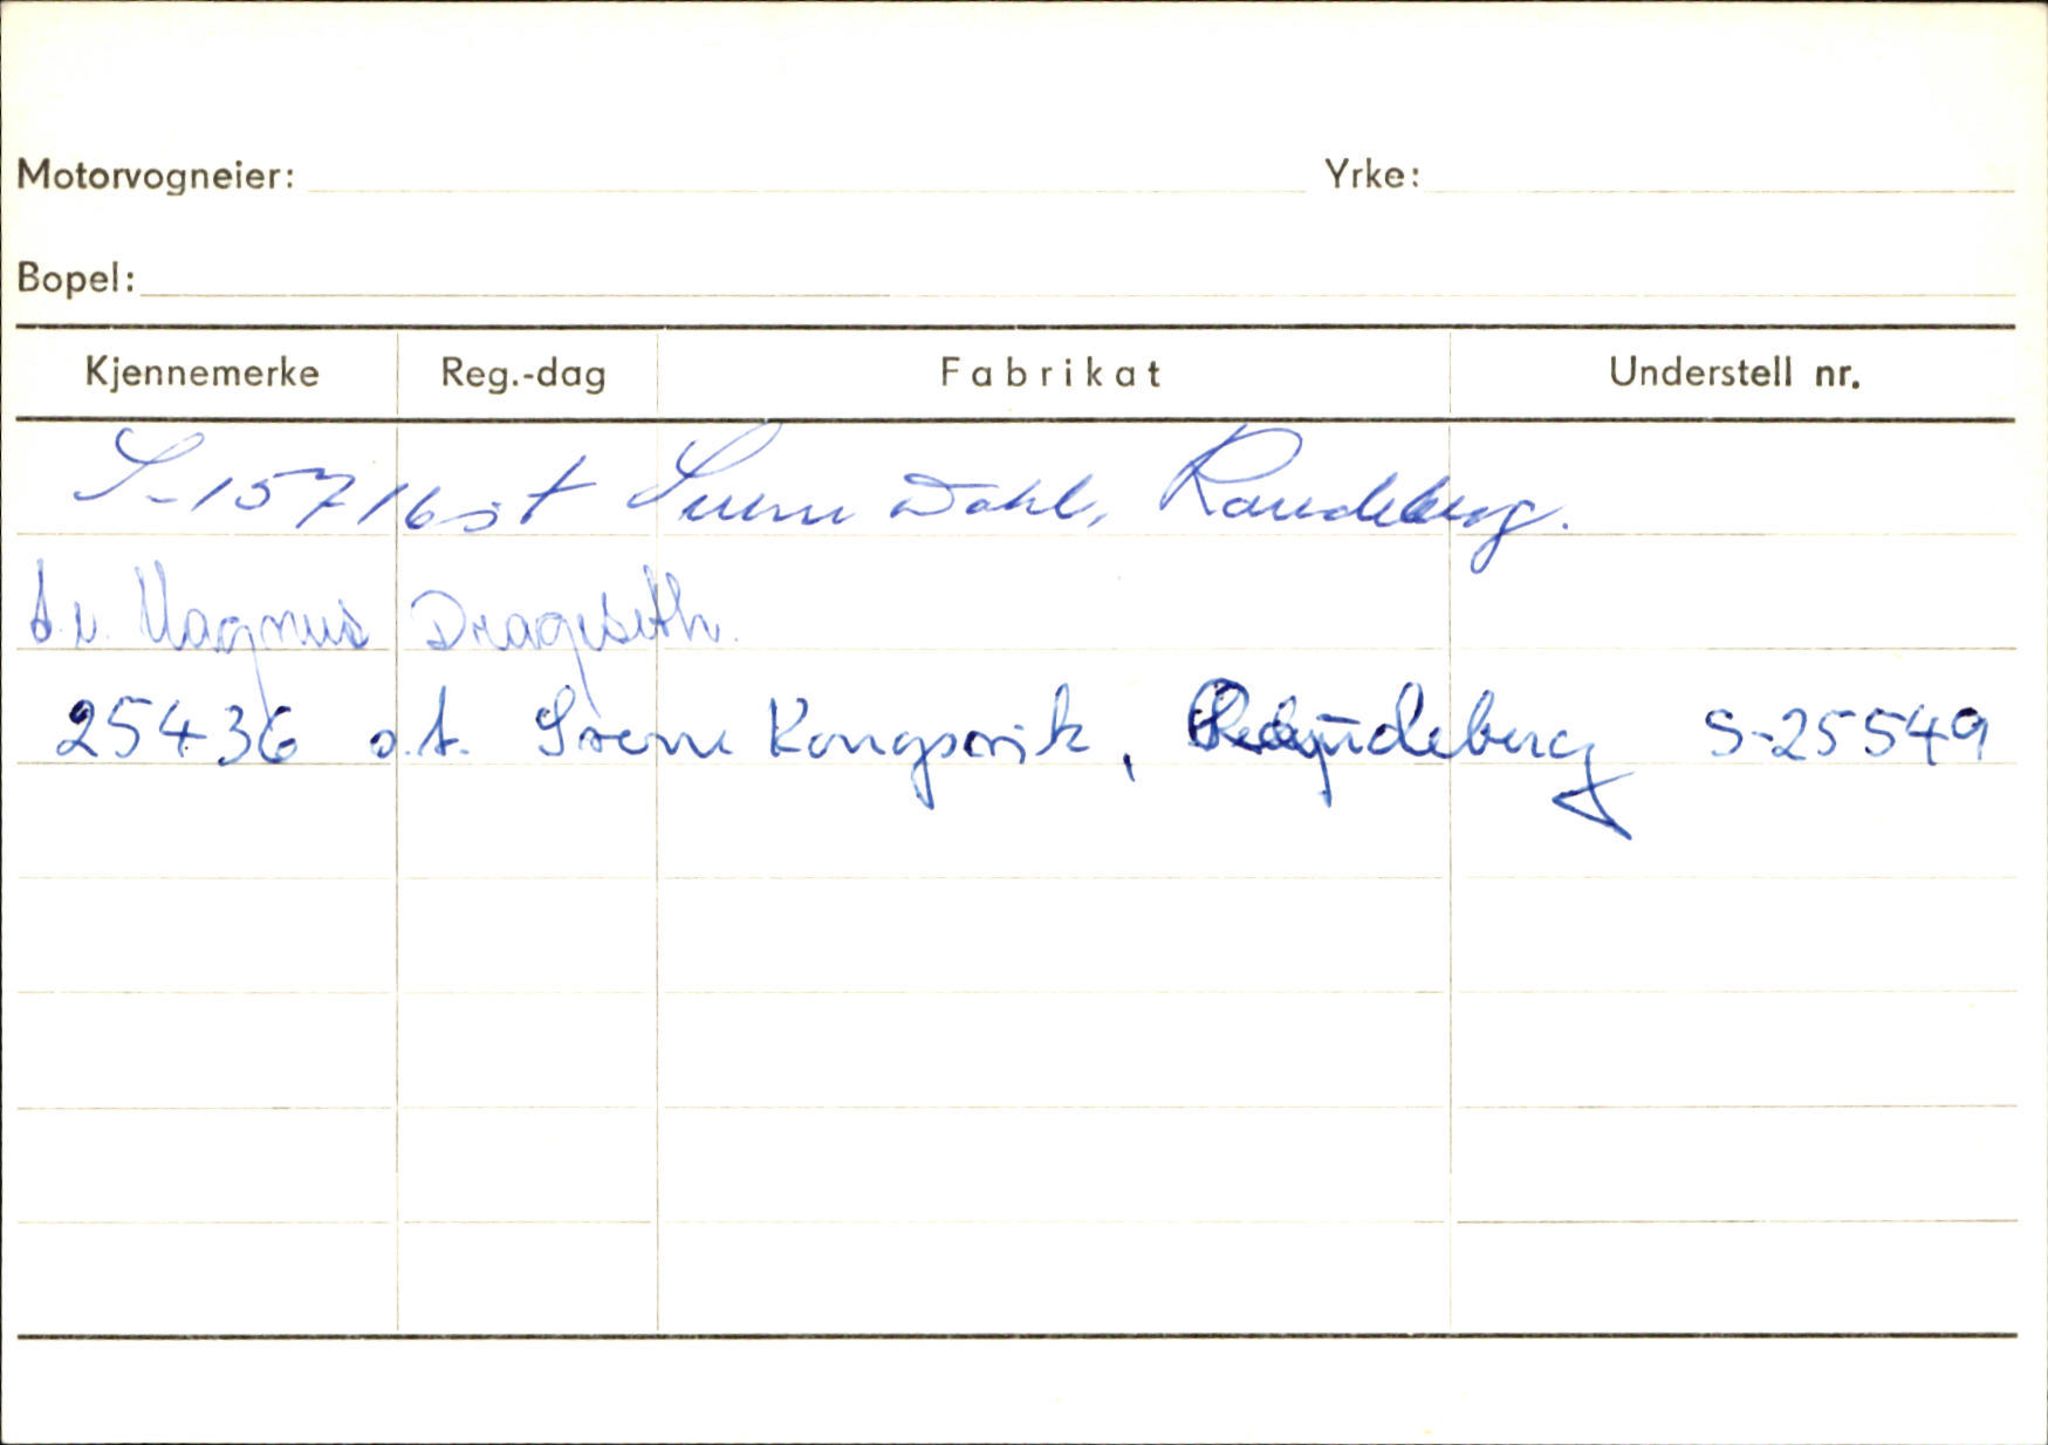 Motorvogneier: Yrke:
Bopel:
Kjennemerke Reg.-dag Fabrikat Understell nr.
S-15716 st Sverre Dahl, Raudeberg.
Magnus Drageseth.
25436 o.t. Sverre Kongsvik, Raudeberg S-25549